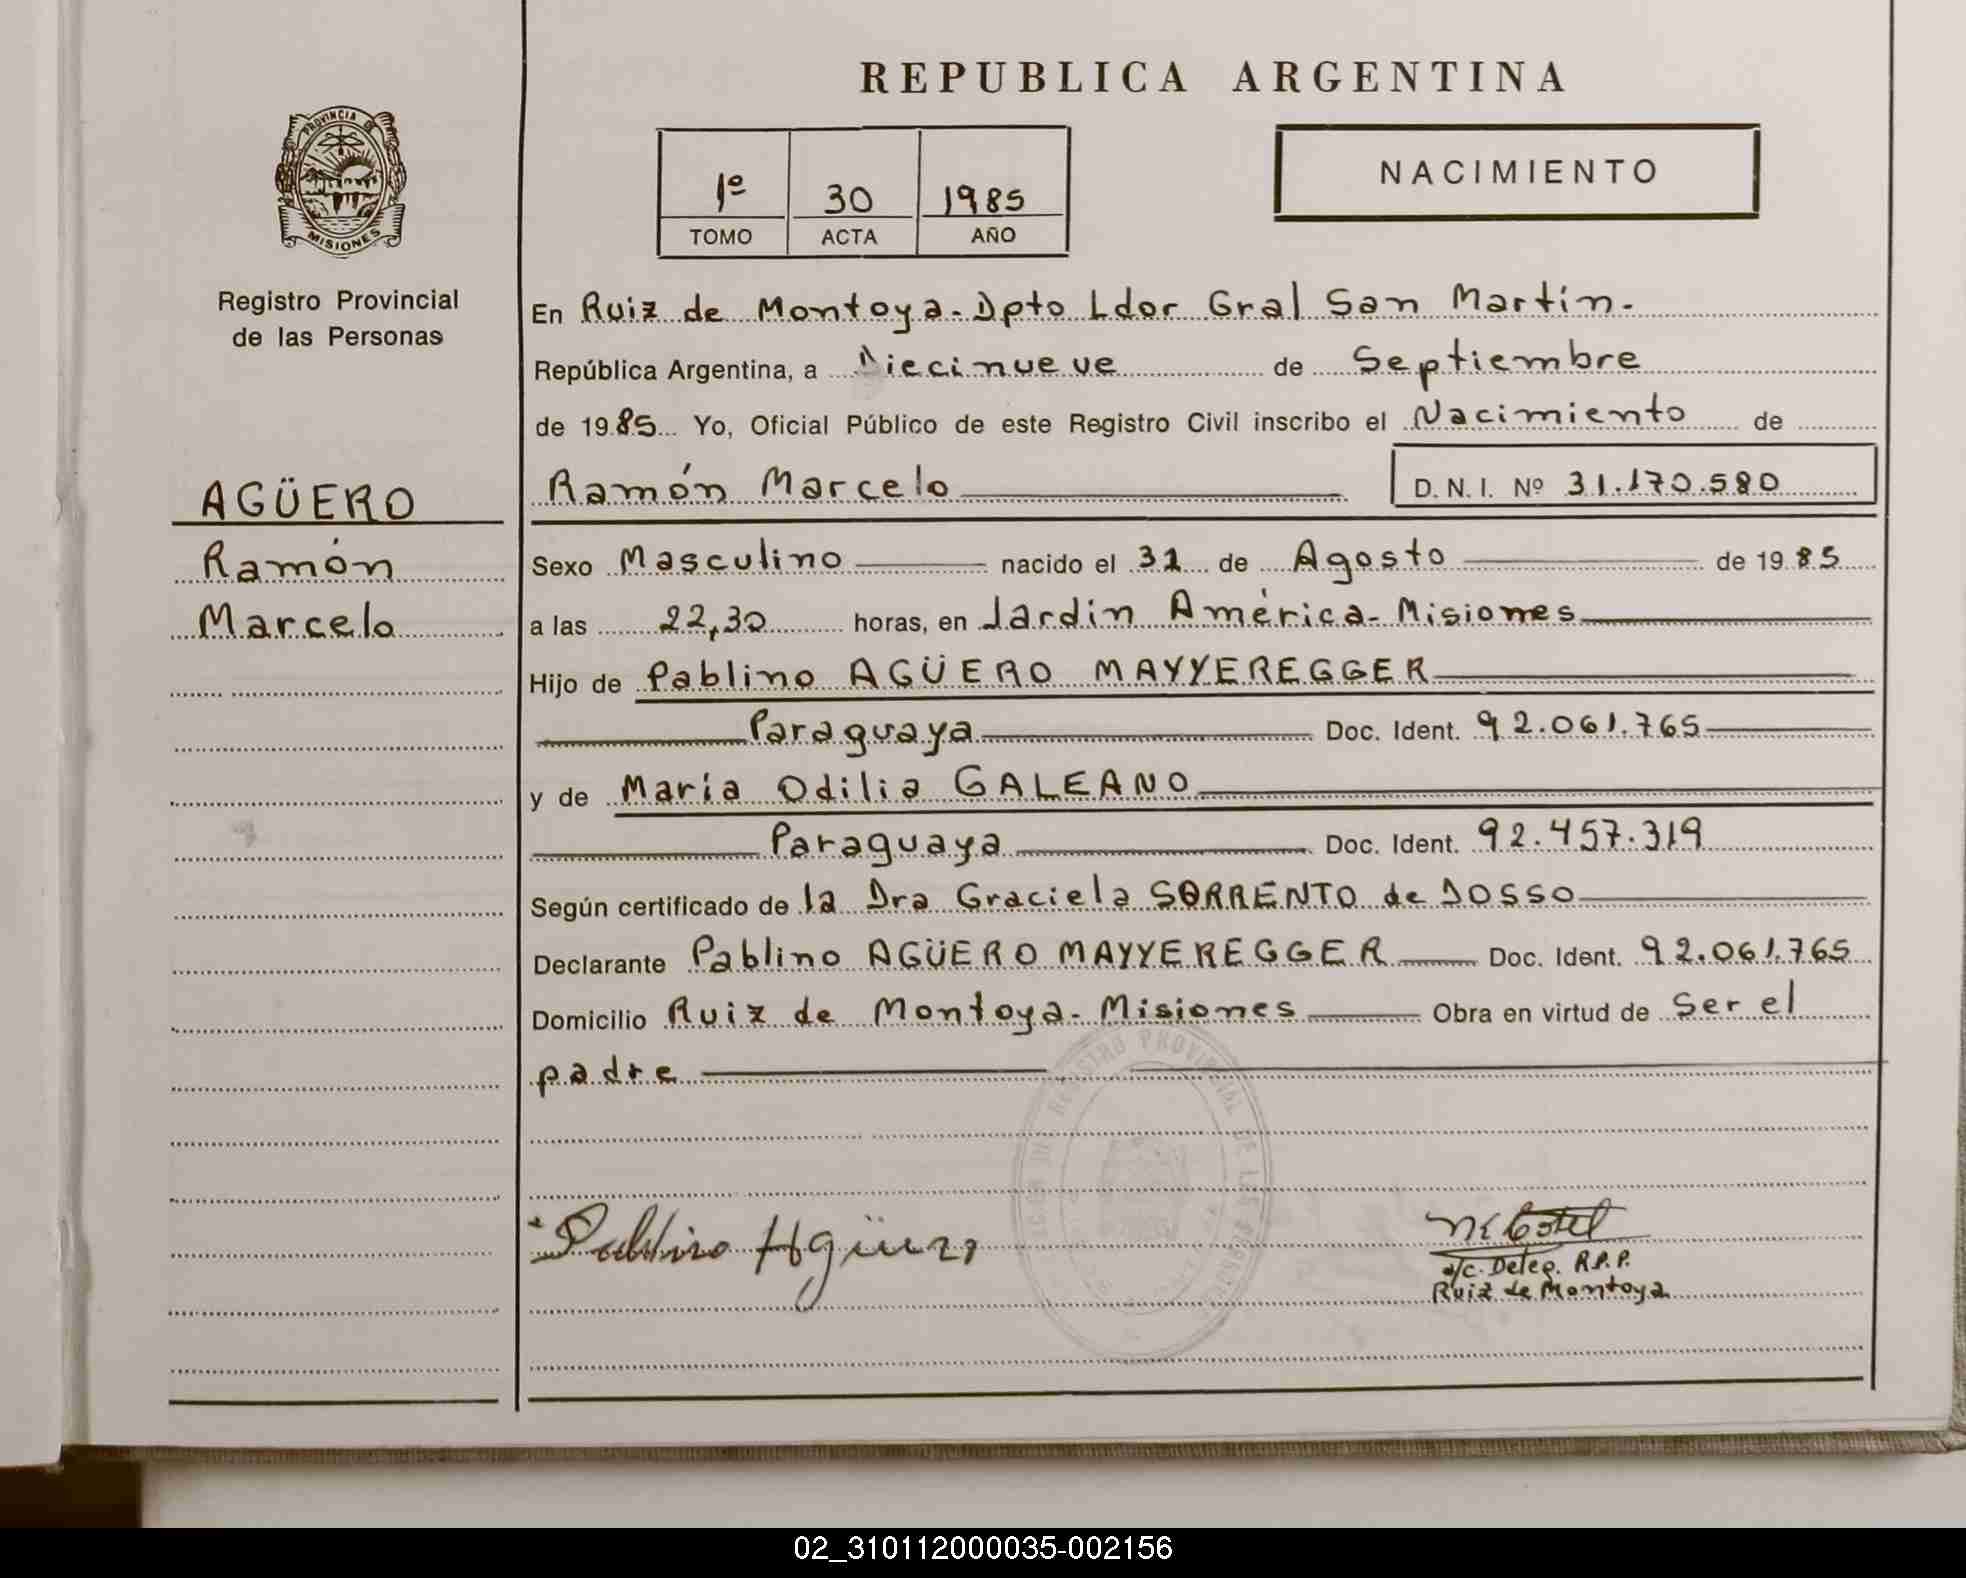 REPUBLICA ARGENTINA
PROVINCIA DE
MISIONES
Registro Provincial
de las Personas
1º 30 1985
TOMO ACTA AÑO
NACIMIENTO
En Ruiz de Montoya-Dpto Ldor Gral San Martín.
República Argentina, a Diecinueve de Septiembre
de 1985 Yo, Oficial Público de este Registro Civil inscribo el Nacimiento de
Ramón Marcelo D. N. I. Nº 31.170.580
AGÜERO
Ramón
Marcelo
Sexo Masculino nacido el 31 de Agosto de 1985
a las 22,30 horas, en Jardín América-Misiones
Hijo de Pablino AGÜERO MAYYEREGGER
Paraguaya Doc. Ident. 92.061.765
y de María Odilia GALEANO
Paraguaya Doc. Ident. 92.457.319
Según certificado de la Dra Graciela SORRENTO de DOSSO
Declarante Pablino AGÜERO MAYYEREGGER Doc. Ident. 92.061.765
Domicilio Ruiz de Montoya-Misiones Obra en virtud de Ser el
padre
REGISTRO PROVINCIAL DE LAS PERSONAS
Pablino Agüero
a/c. Deleg. R.P.P.
Ruiz de Montoya
02_310112000035-002156